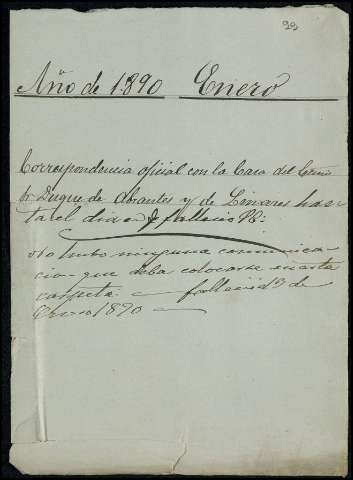 99
Año de 1890 Enero
Correspondencia oficial con la Casa del Exmo
Sr Duque de Abrantes y de Linares has-
ta el dia en q fallecio SE:
No hubo ninguna comunica-
cion que deba colocarse en esta
carpeta. fallecio el 3 de
Enero 1890